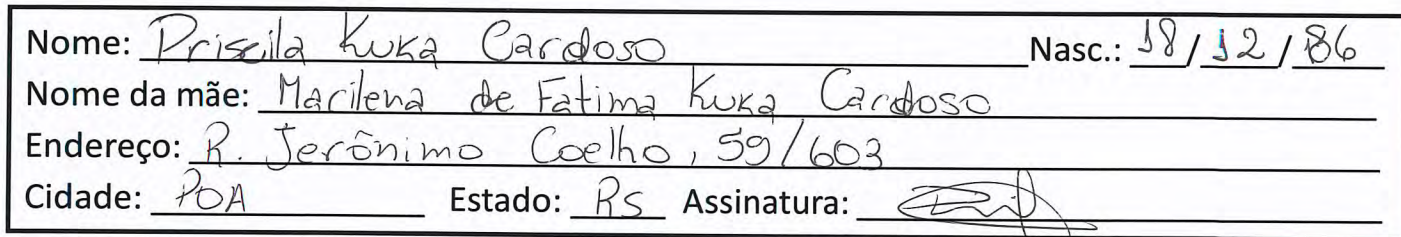 Nome: Priscila Kuka Cardoso Nasc.: 18/12/86
Nome da mãe: Marilena de Fatima Kuka Cardoso
Endereço: R. Jerônimo Coelho, 59/603
Cidade: POA Estado: RS Assinatura: